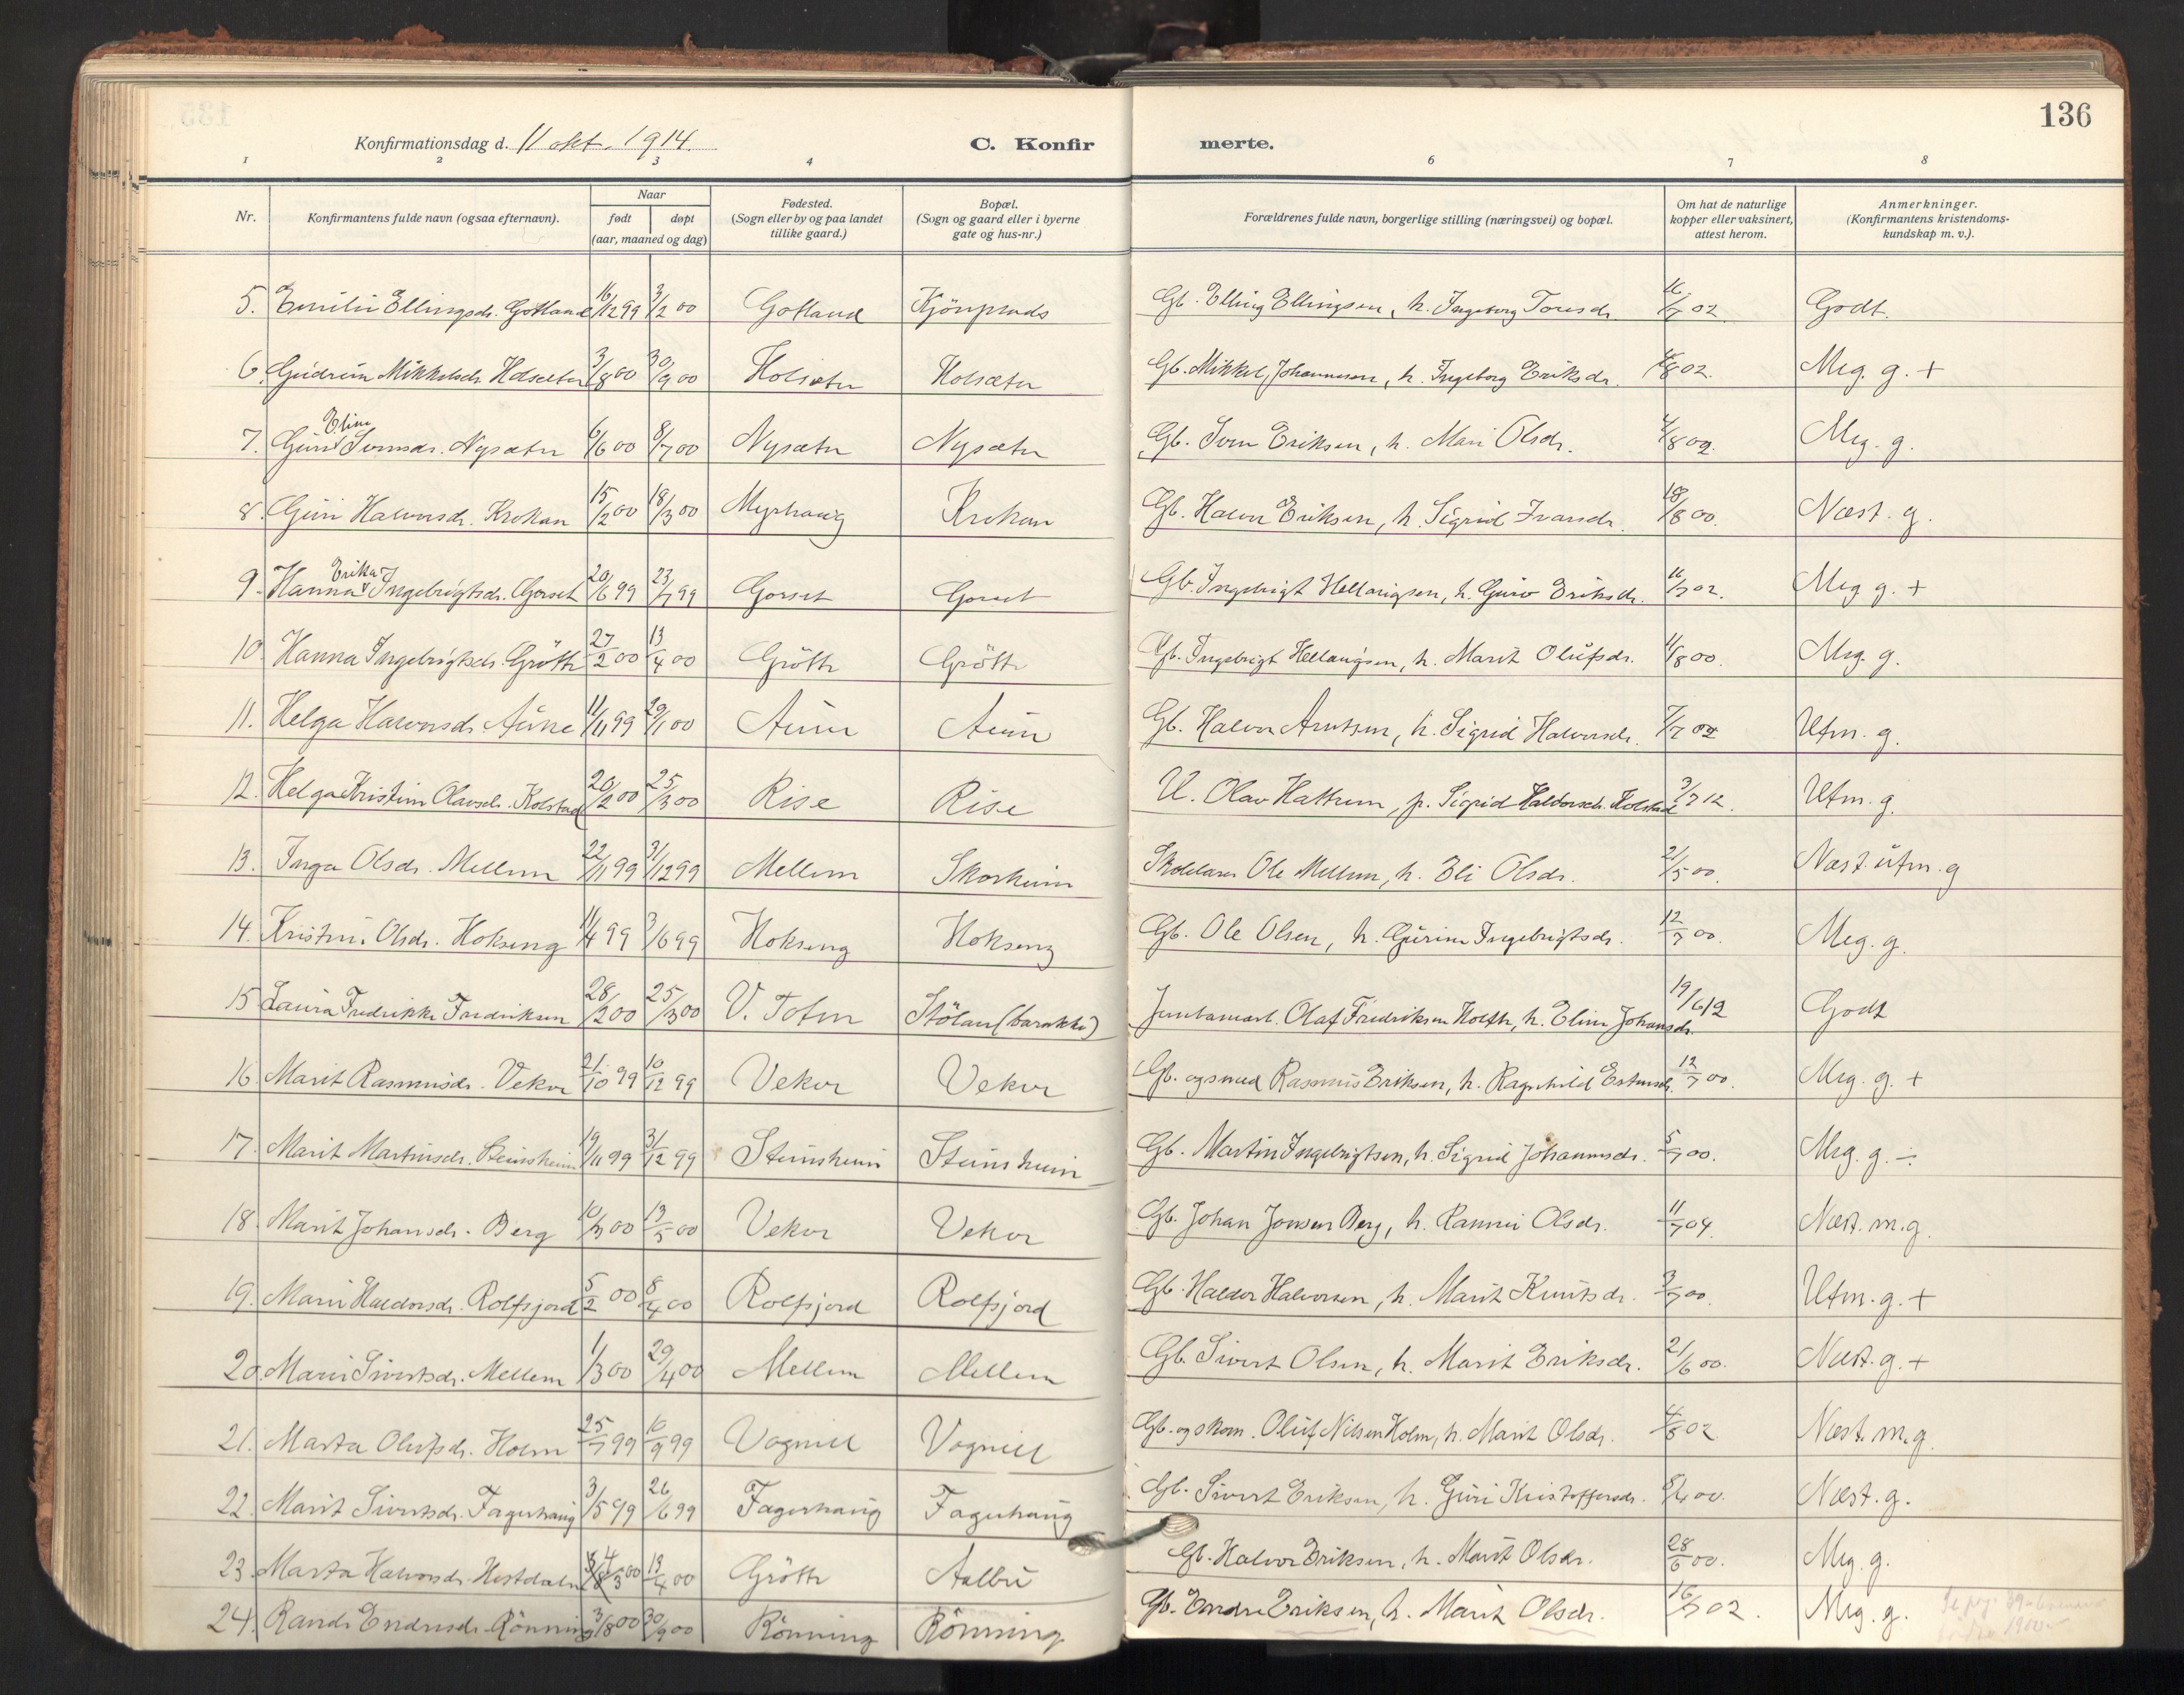 136
Konfirmationsdag d. 11 okt. 1914.
C. Konfir
merte.
1 2 3 4 6 7 8
Nr.
Konfirmantens fulde navn (ogsaa efternavn).
Naar
født
døpt
(aar, maaned og dag)
Fødested.
(Sogn eller by og paa landet
tillike gaard.)
Bopæl.
(Sogn og gaard eller i byerne
gate og hus-nr.)
Forældrenes fulde navn, borgerlige stilling (næringsvei) og bopæl.
Om hat de naturlige
kopper eller vaksinert,
attest herom.
Anmerkninger.
(Konfirmantens kristendoms-
kundskap m. v.).
5. Emilie Ellingsdr. Gotland 16/12 99 3/2 00 Gotland Gb. Elling Ellingsen, h. Ingeborg Toresdr. 16/7 02. Godt.
6. Gudrun Mikkelsdr. Holsæter 3/8 00 30/9 00 Holsæter Holsæter Gb. Mikkel Johannesen, h. Ingeborg Eriksdr. 4/8 02. Meg. g. +
7. Guri Eline Svensdr. Nysæter 6/6 00 8/7 00 Nysæter Nysæter Gb. Sven Eriksen, h. Mari Olsdr. 4/8 02. Meg. g.
8. Guri Halvorsdr. Krokan 15/2 00 18/3 00 Myrhaug Krokan Gb. Halvor Eriksen, h. Sigrid Ivarsdr. 18/8 00. Næst. g.
9. Hanna Erika Ingebrigtsdr. Gorset 20/6 99 23/7 99 Gorset Gorset Gb. Ingebrigt Hellarigsen, h. Guro Eriksdr. 16/7 02. Meg g. +
10. Hanna Ingebrigtsdr. Grøtte 27/2 00 13/4 00 Grøtte Grøtte Gb. Ingebrigt Hellaugsen, h. Marit Olufsdr. 11/8 00. Meg. g.
11. Helga Halvorsdr. Aune 11/11 99 29/1 00 Aune Aune Gb. Halvor Arntsen, h. Sigrid Halvorsdr. 7/7 02 Utm. g.
12. Helga Kristine Olavsdr. Kolstad 20/2 00 25/3 00 Rise Rise U. Olav Hattrem, p. Sigrid Haldorsdr. Kolstad 3/7 12. Utm. g.
13. Inga Olsdr. Mellem 22/11 99 31/12 99 Mellem Skorheim Skolelærer Ole Mellem, h. Eli Olsdr. 21/5 00. Næst. utm. g
14. Kristine Olsdr. Hokseng 11/4 99 3/6 99 Hokseng Hokseng Gb. Ole Olsen, h. Gurine Ingebrigtsdr. 12/7 00. Meg. g.
15 Laura Fredrikke Fredriksen 28/2 00 25/3 00 V. Toten Stölan (barakke) Jernbanearb. Olaf Fredriksen Holth, h. Eline Johansdr. 19/6 12 Godt
16. Marit Rasmusdr. Vekve 21/10 99 10/12 99 Vekve Vekve Gb. og smed Rasmus Eriksen, h. Ragnhild Estensdr. 12/7 00. Meg. g. +
17. Marit Martinsdr. Steinsheim 19/11 99 31/12 99 Steinsheim Steinsheim Gb. Martin Ingebrigtsen, h. Sigrid Johannesdr. 5/7 00. Meg. g. ÷
18. Marit Johansdr. Berg 10/3 00 13/5 00 Vekve Vekve Gb. Johan Jonsen Berg, h. Rannei Olsdr. 11/7 04. Næst. m. g.
19. Mari Haldorsdr. Rolfsjord 5/2 00 8/4 00 Rolfsjord Rolfsjord Gb. Haldor Halvorsen, h. Marit Knutsdr. 3/7 00. Utm. g. +
20. Mari Sivertsdr. Mellem 1/3 00 29/4 00 Mellem Mellem Gb. Sivert Olsen, h. Marit Eriksdr. 21/6 00. Næst. g. +
21. Marta Olufsdr. Holm 25/7 99 10/9 99 Vognill Vognill Gb. og skom. Oluf Nilsen Holm, h. Marit Olsdr. 4/8 02 Næst. m. g.
22. Marit Sivertsdr. Fagerhaug 3/5 99 26/6 99 Fagerhaug Fagerhaug Gb. Sivert Eriksen, h. Guri Kristoffersdr. 8/6 00. Næst. g.
23. Marta Halvorsdr. Hestdalen 4/3 00 13/4 00 Grøtte Aalbu Gb. Halvor Eriksen, h. Marit Olsdr. 28/6 00. Meg. g.
24. Randi Endresdr. Rönning 3/8 00 30/9 00 Rönning Rönning Gb. Endre Eriksen, h. Marit Olsdr. 16/7 02. Meg. g.